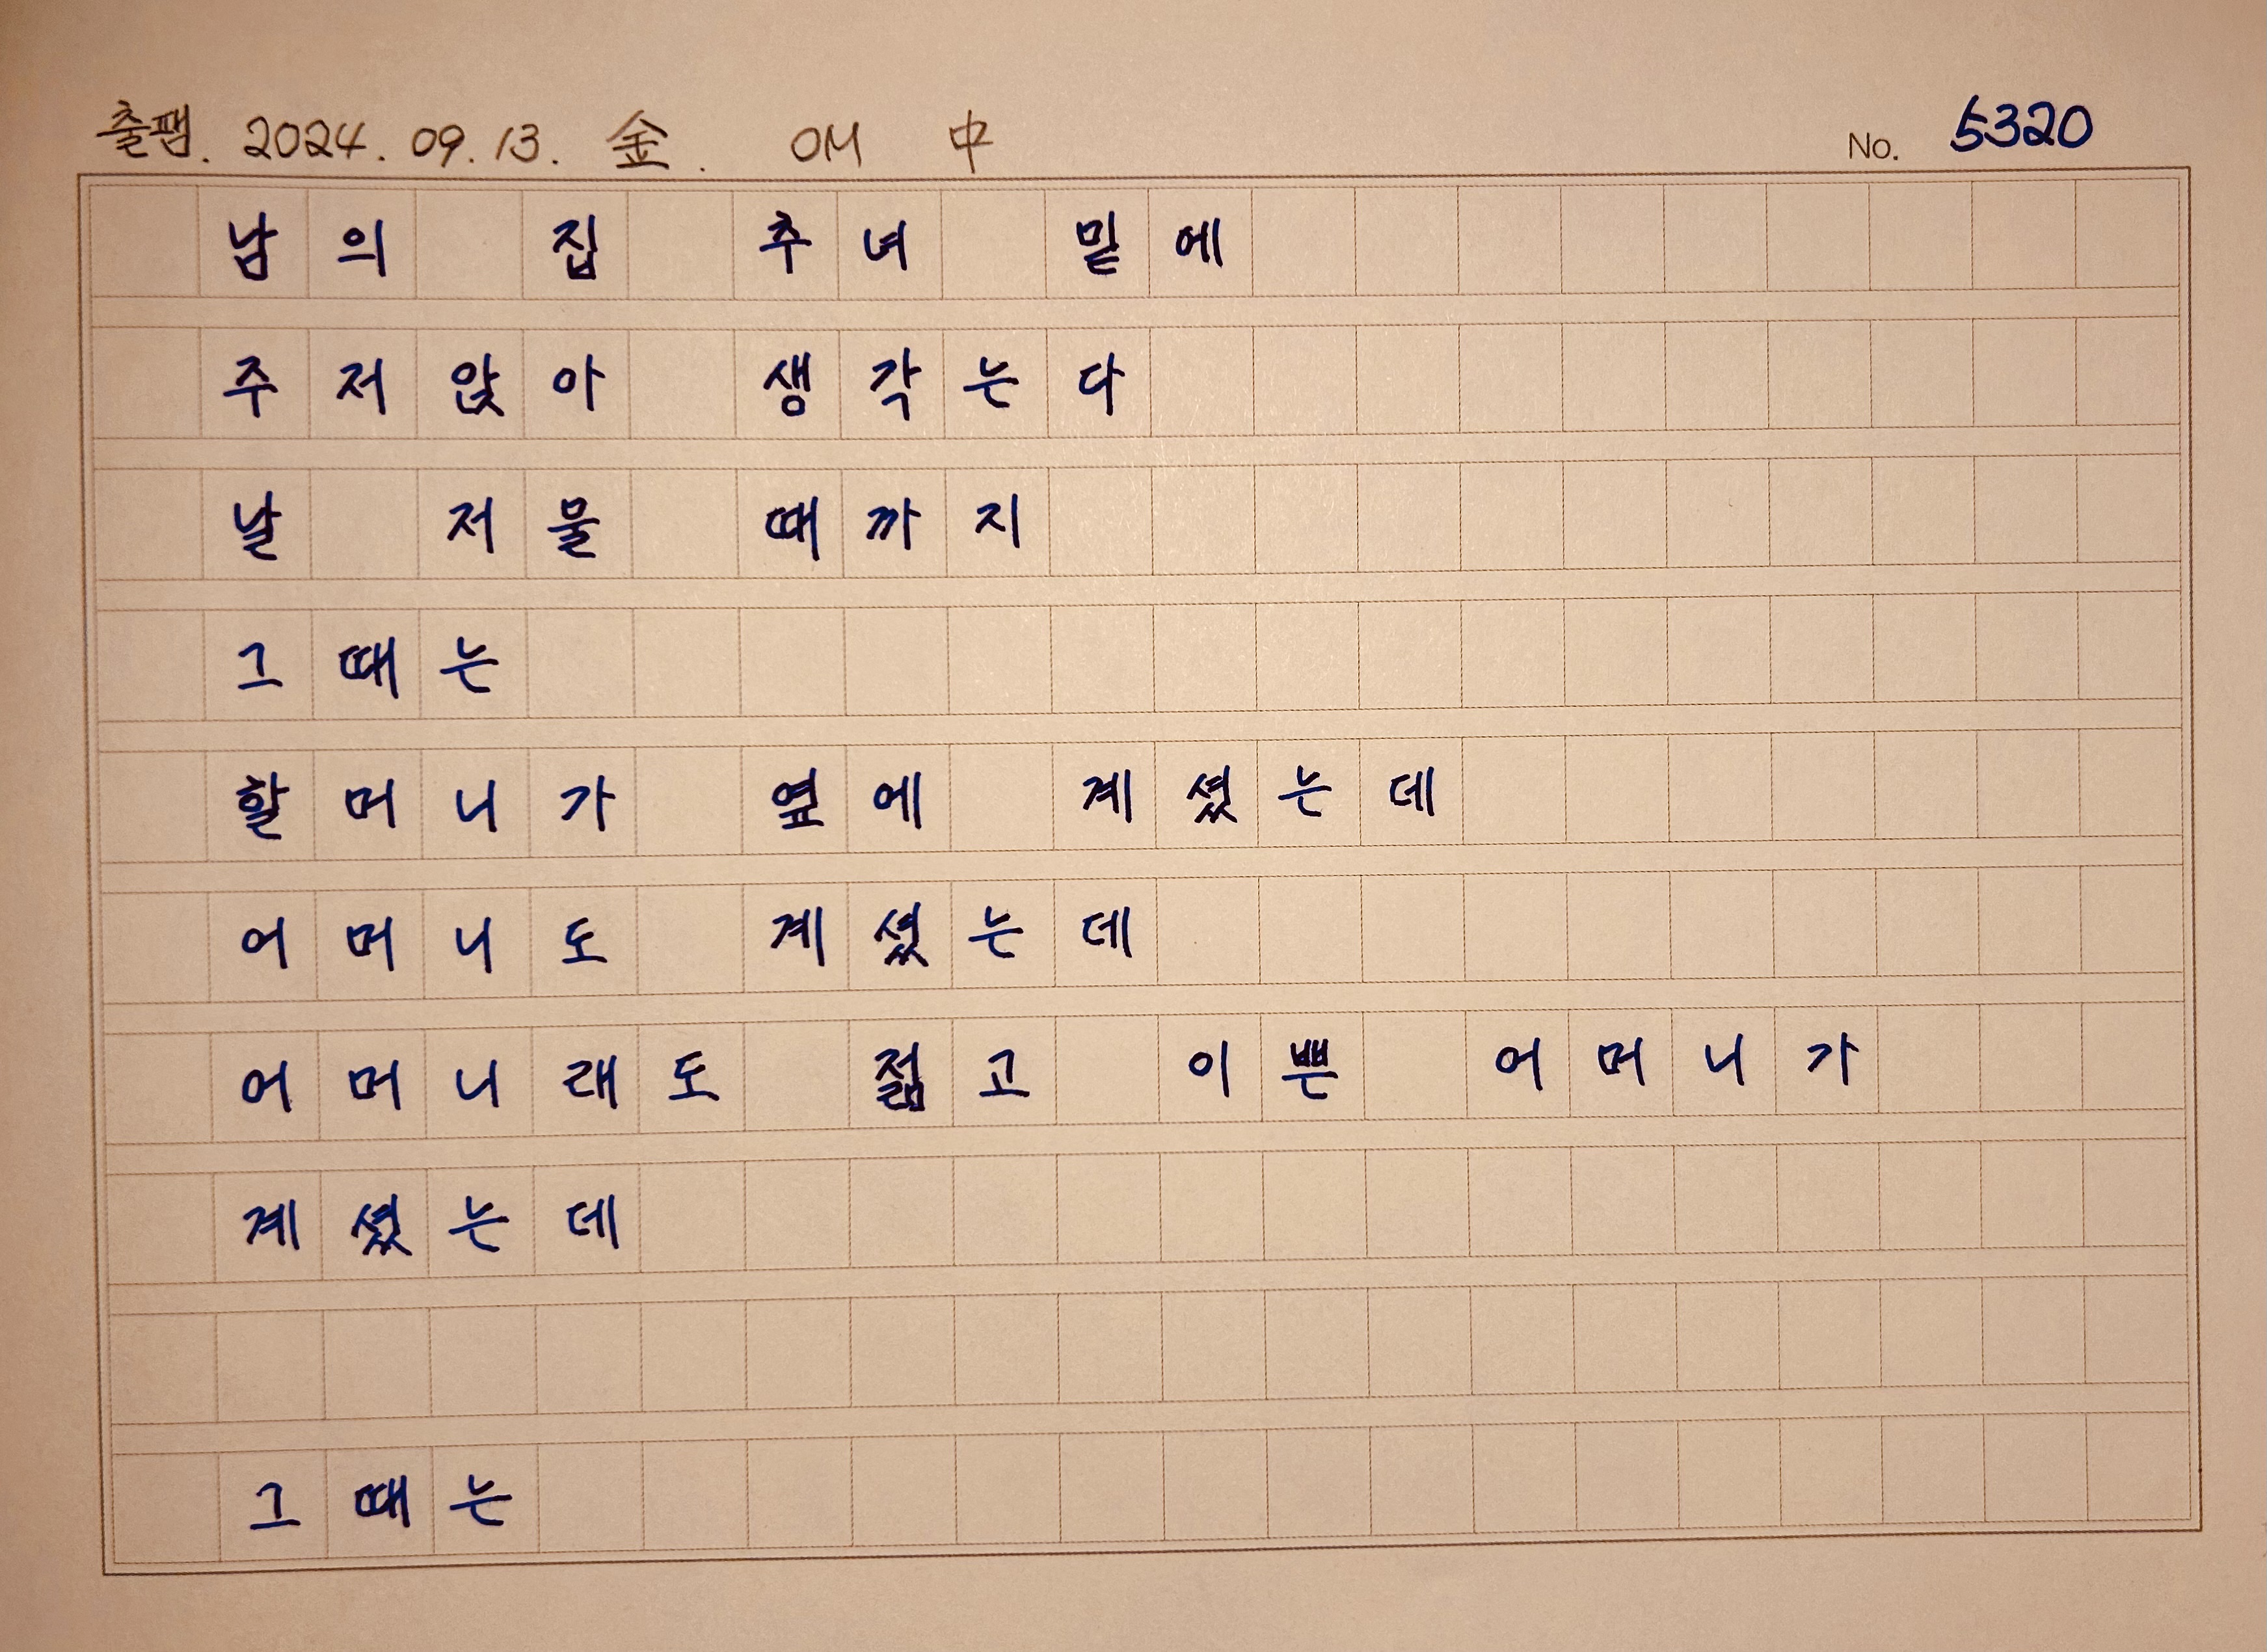 출팸. 2024. 09. 13. 金. OM 中 No. 5320
남의 집 추녀 밑에
주저앉아 생각는다
날 저물 때까지
그때는
할머니가 옆에 계셨는데
어머니도 계셨는데
어머니래도 젊고 이쁜 어머니가
계셨는데
그때는